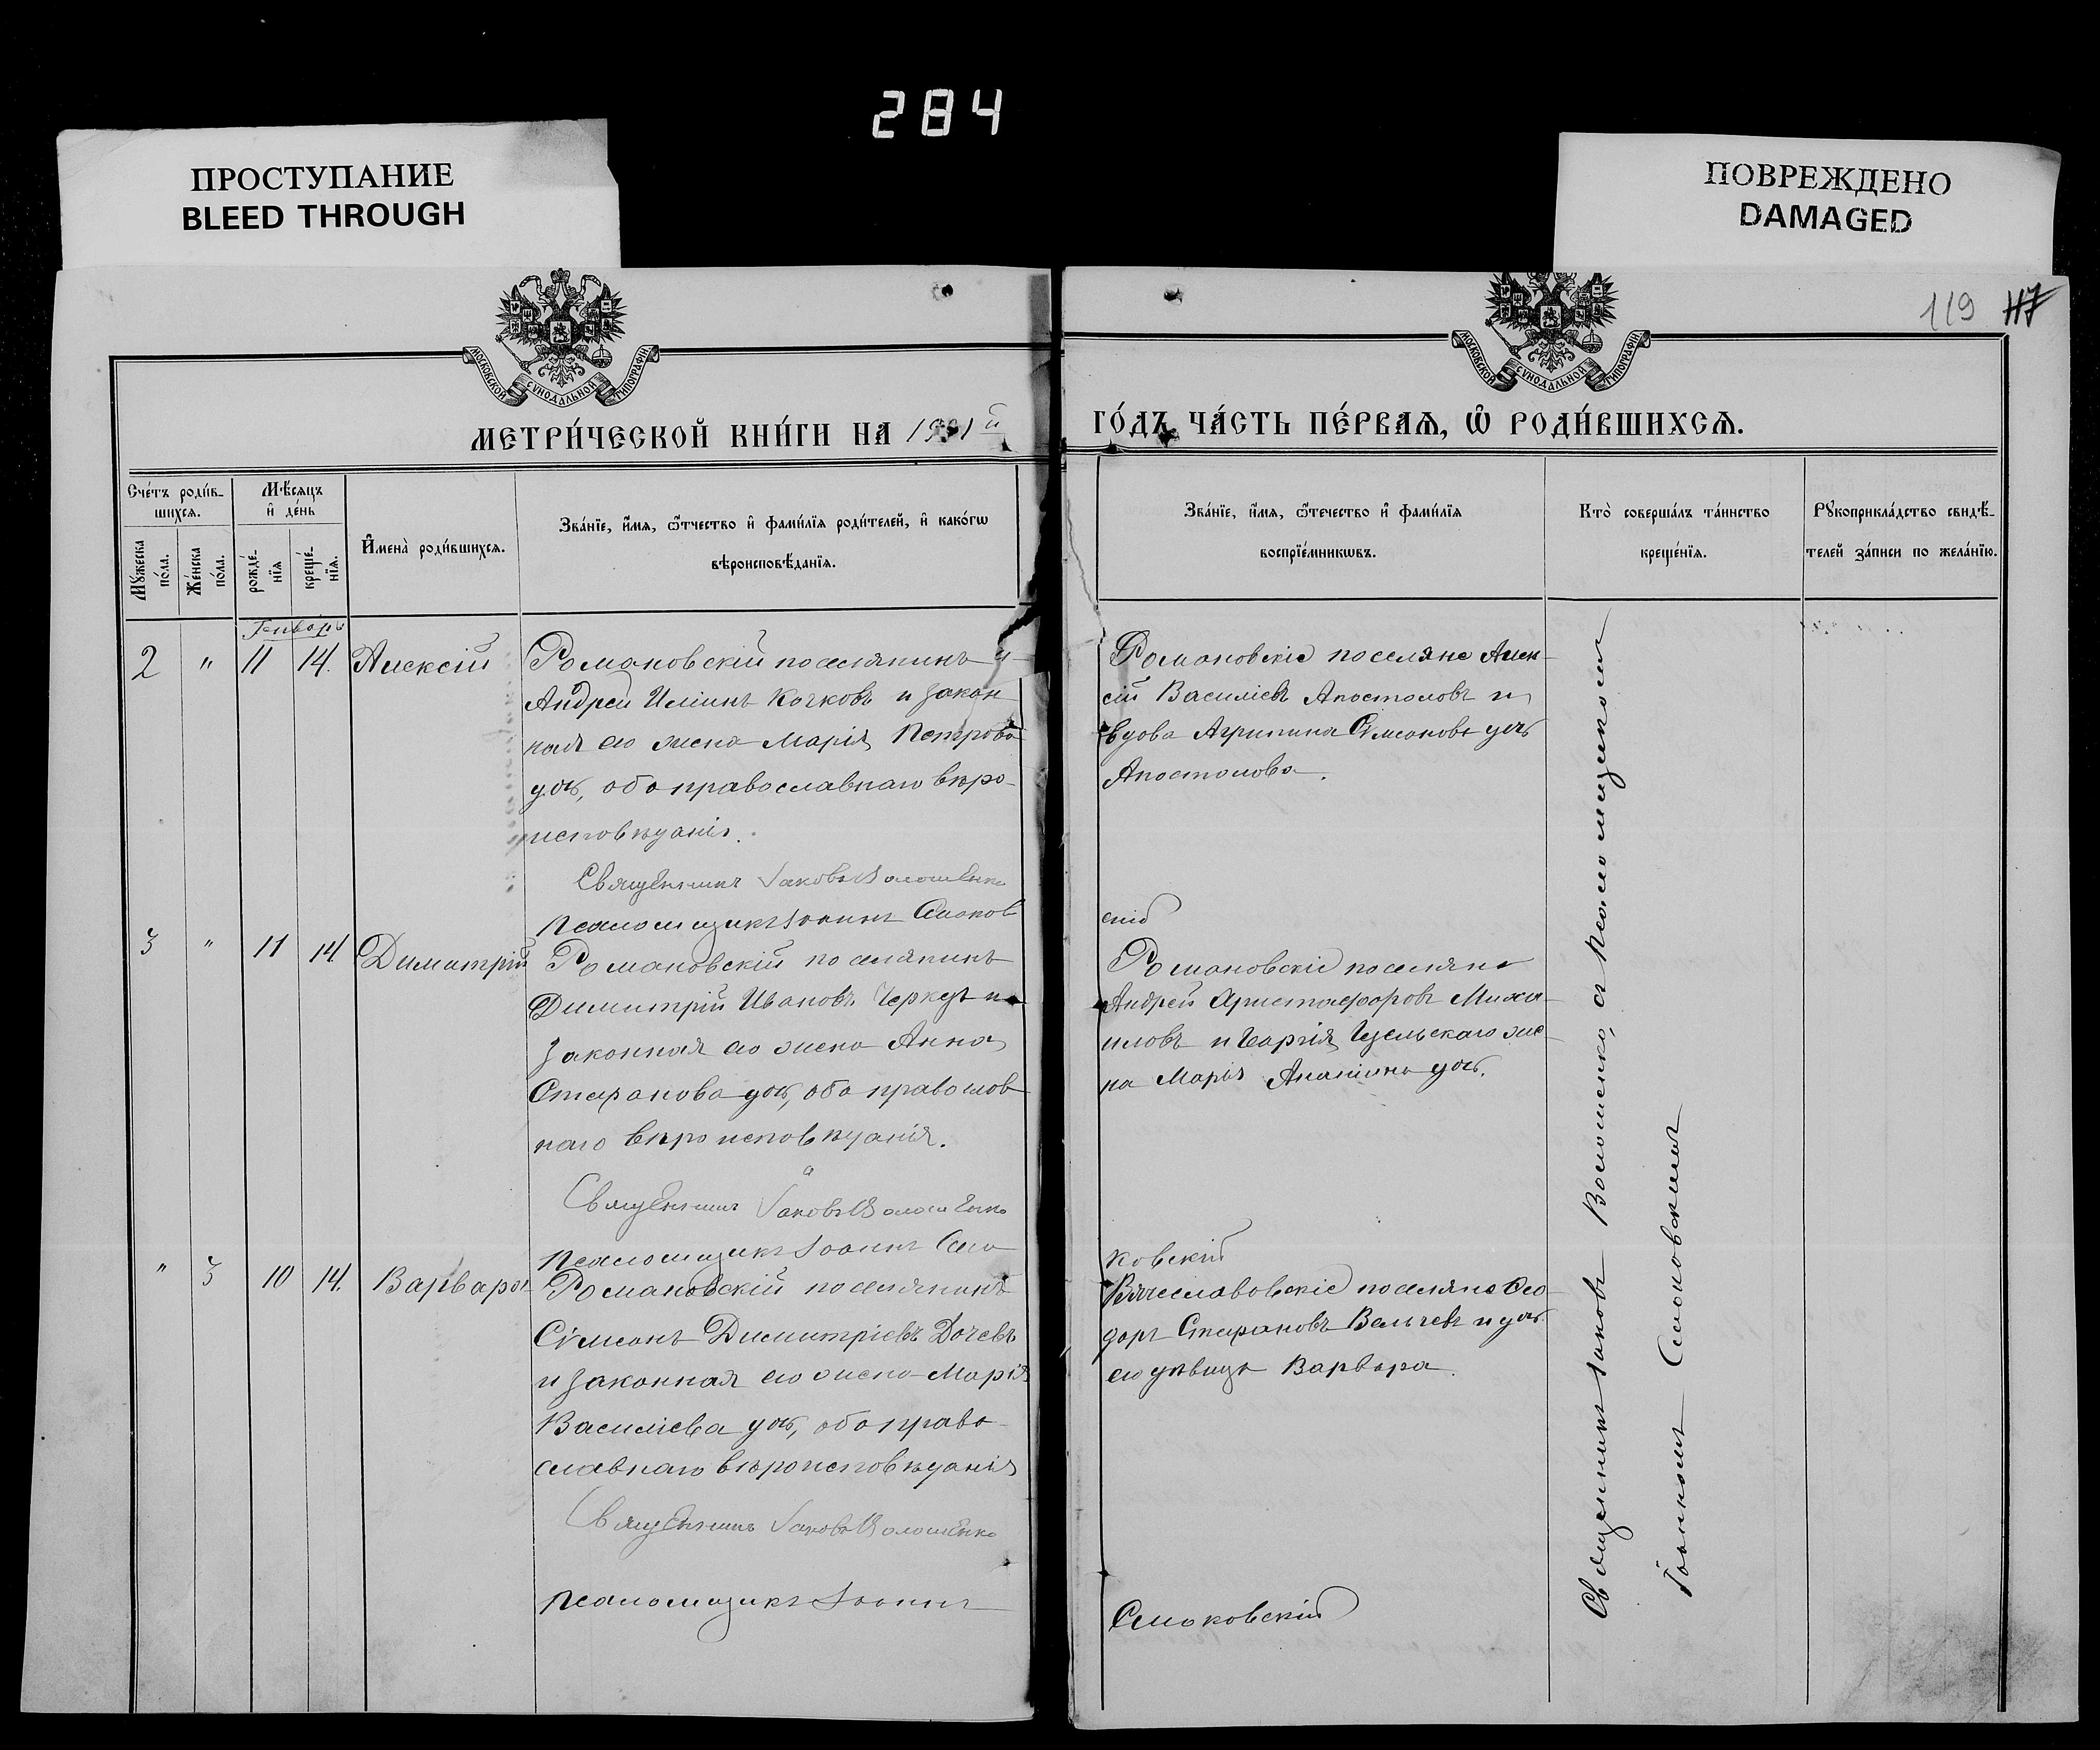 284
ПРОСТУПАНИЕ
BLEED THROUGH
ПОВРЕЖДЕНО
DAMAGED
119 117
МОСКОВСКОЙ СѴНОДАЛЬНОЙ ТИПОГРАФІИ
МОСКОВСКОЙ СѴНОДАЛЬНОЙ ТИПОГРАФІИ
МЕТРИ́ЧЕСКОЙ КНИ́ГИ НА 1901й
ГО́ДЪ, ЧА́СТЬ ПЕ́РВАѦ, Ѡ҆ РОДИ́ВШИХСѦ.
Сче́тъ роди́в-
шихсѧ.
Мꙋ́жеска
по́ла.
Же́нска
по́ла.
Мѣ́сѧцъ
и҆ де́нь
рожде́-
нїѧ
креще́-
нїѧ.
И҆мена̀ роди́вшихсѧ.
Зва́нїе, и҆́мѧ, ѻ҆́тчество и҆ фами́лїѧ роди́телей, и҆ како́гѡ
вѣроисповѣ́данїѧ.
Зва́нїе, и҆́мѧ, ѻ҆́течество и҆ фами́лїѧ
воспрїе́мникѡвъ.
Кто̀ соверша́лъ та́инство
креще́нїѧ.
Рꙋкоприкла́дство свидѣ́-
телей за́писи по жела́нїю.
Генварь
2 " 11 14. Алексій
Романовскій поселянинъ
Андрей Иліинъ Кочковъ и закон
ная его жена Марія Петрова
дочь, оба православнаго вѣро-
исповѣданія.
Священникъ Іаковъ Волошенко
Псаломщикъ Іоаннъ Смоков
Романовскіе поселяне Алек-
сій Василіевъ Апостоловъ и
вдова Агрипина Сѵмеонова дочь
Апостолова.
скій
3 " 11 14. Димитрій
Романовскій поселянинъ
Димитрій Ивановъ Черкезъ и
законная его жена Анна
Стефанова дочь, оба православ
наго вѣроисповѣданія.
Священникъ Іаковъ Волошенко
Псаломщикъ Іоаннъ Смо
Романовскіе поселяне
Андрей Аристофоровъ Миха-
иловъ и Георгія Узельскаго же-
на Марія Ананіина дочь.
ковскій
" 3 10 14. Варвара
Романовскій поселянинъ
Сѵмеонъ Димитріевъ Дочевъ
и законная его жена Марія
Василіева дочь, оба право-
славнаго вѣроисповѣданія
Священникъ Іаковъ Волошенко
Псаломщикъ Іоаннъ
Вячеславовскіе поселяне Ѳео-
доръ Стефановъ Вельчевъ и дочь
его дѣвица Варвара.
Смоковскій
Священникъ Іаковъ Волошенко, съ Псаломщикомъ
Іоанномъ Смоковскимъ